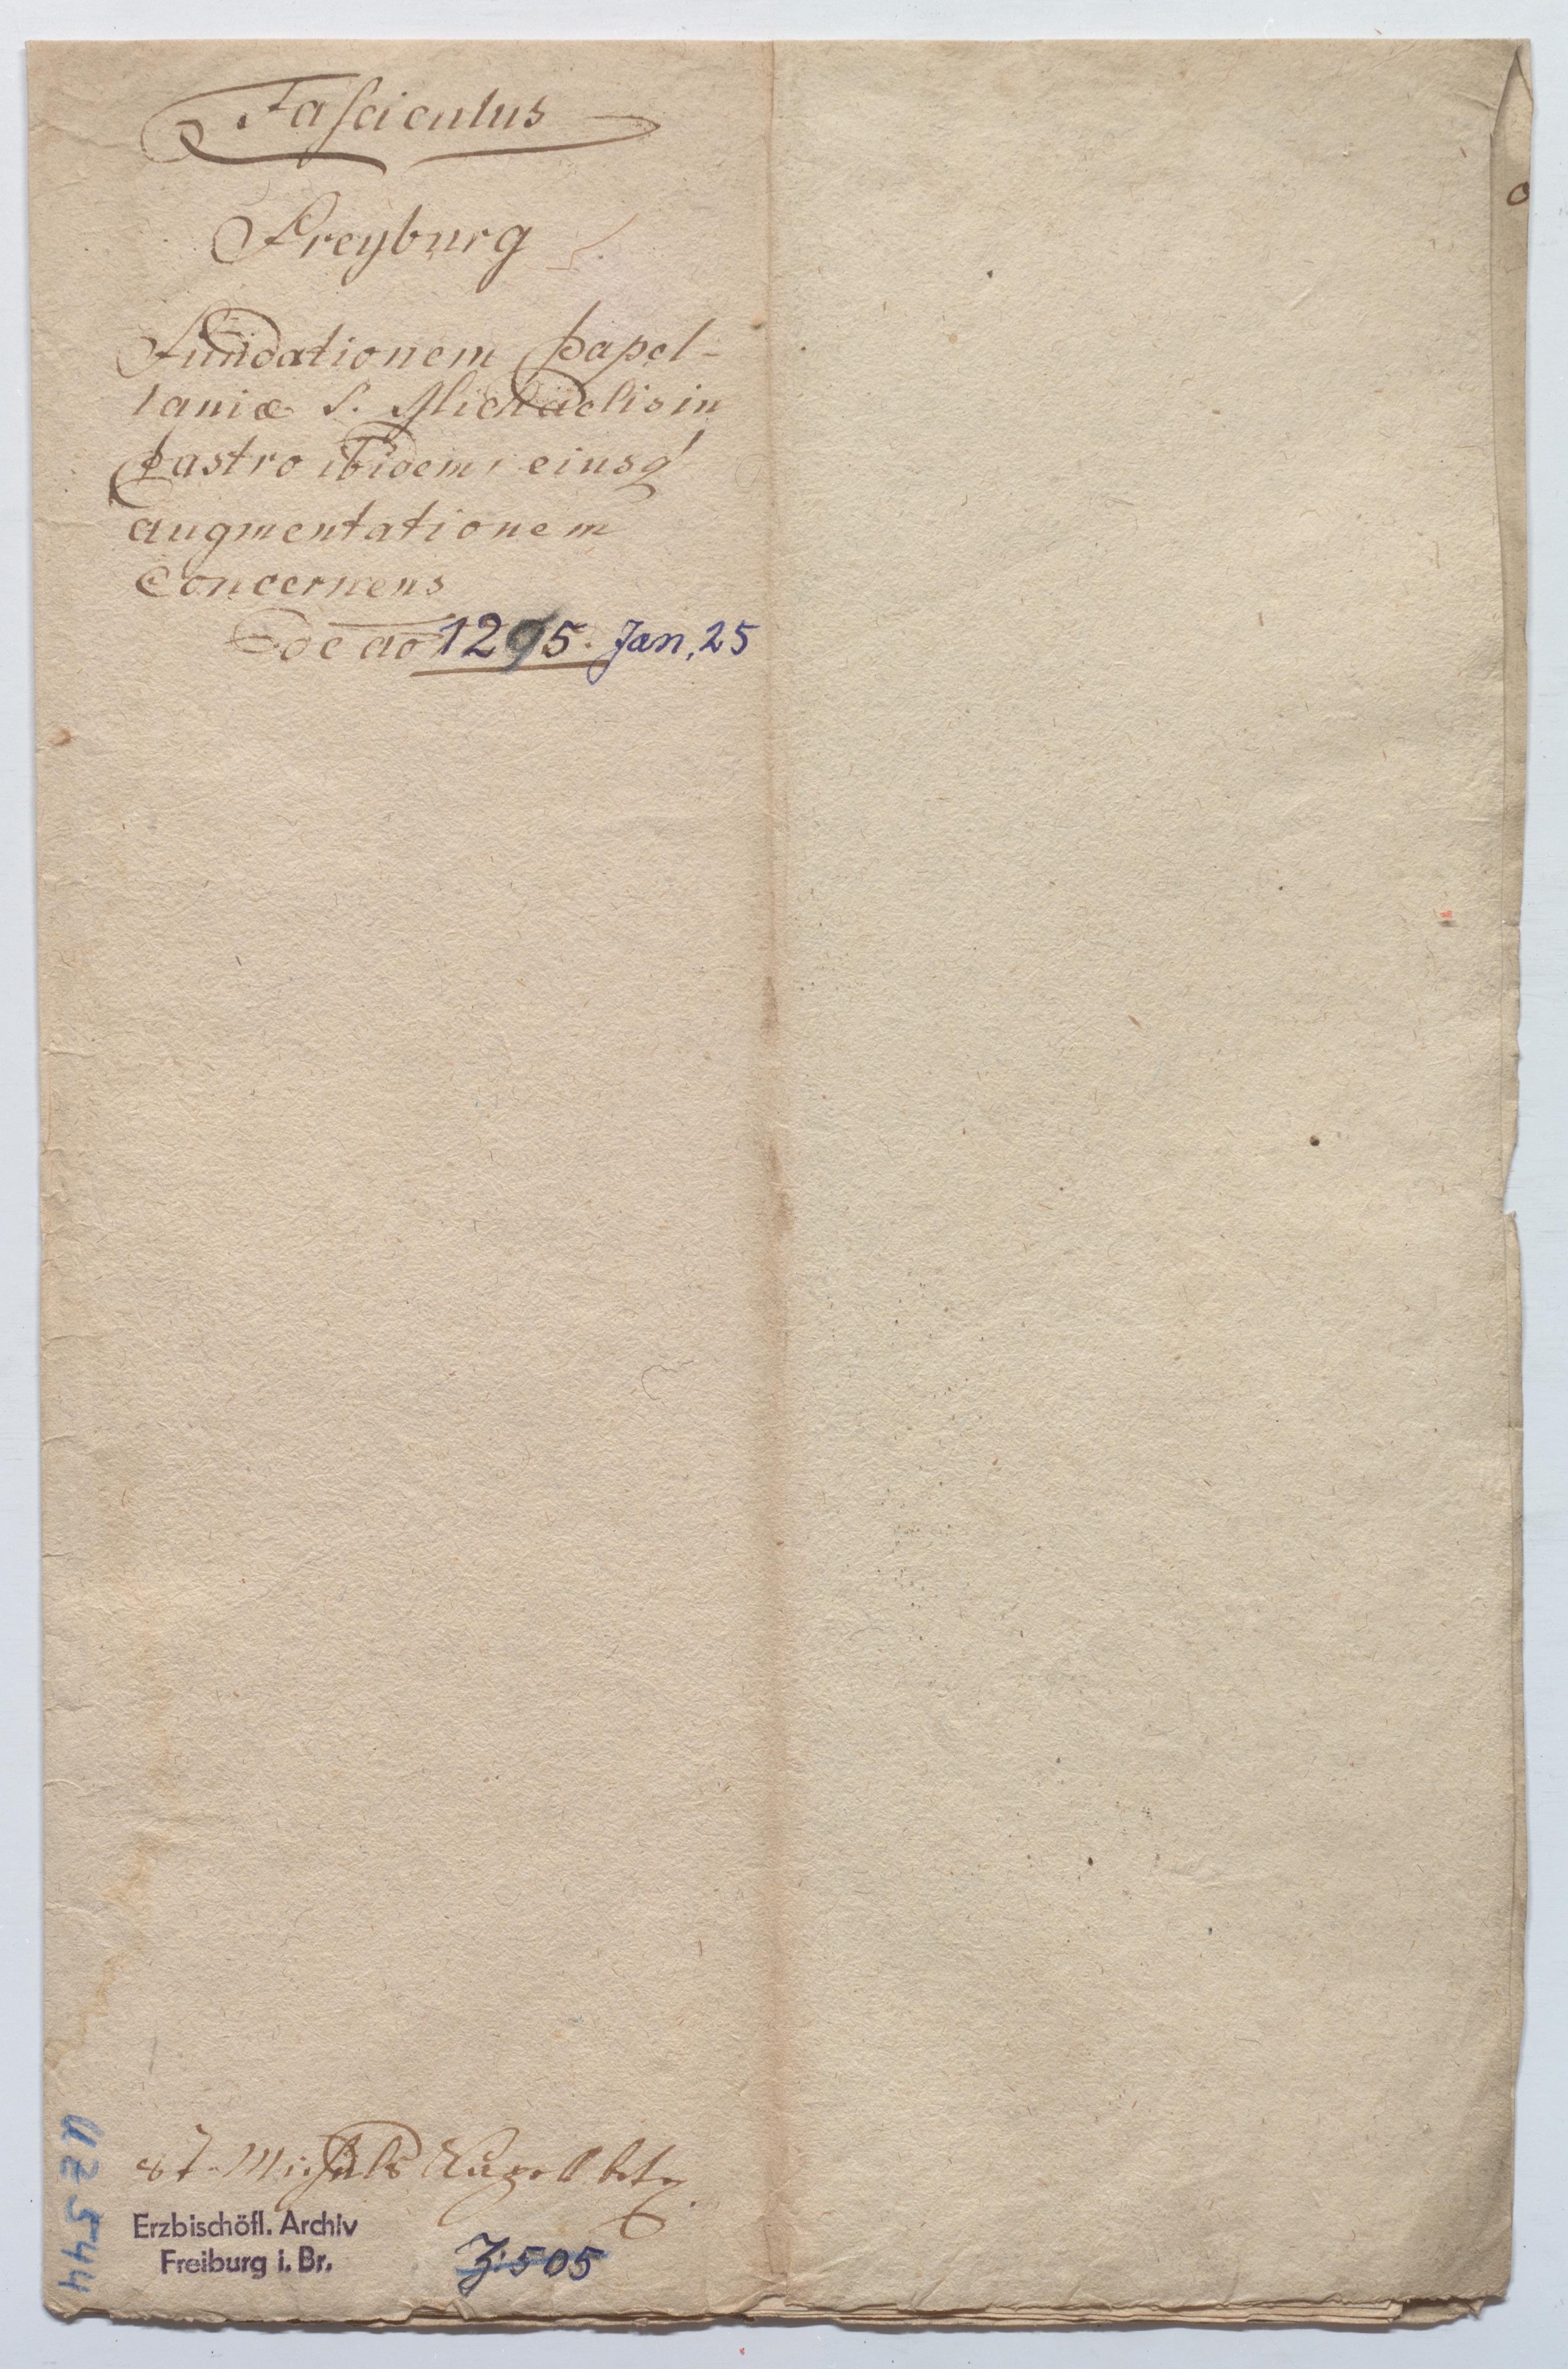 Fasciculus
Freyburg
Fundationem Capel-
laniæ S. Michaelis in
Castro ibidem, eiusq'
augmentationem
Concernens
De ao 1295. Jan. 25
St. Michels Capell betr.
Erzbischöfl. Archiv
Freiburg i. Br.
Z: 505
UZ 544